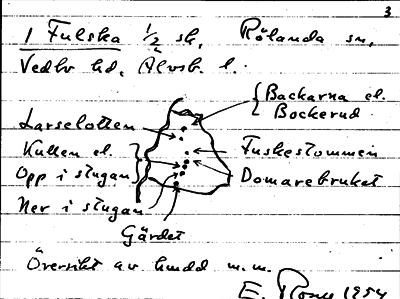 3
1 Fulska 1/2 sk, Rölanda sn,
Vedbo hd, Älvsb. l.
Backarna el.
Bockerud
Larselotten
Kullen el.
Opp i stugan
Ner i stugan
Gärdet
Fuskestommen
Domarebruket
Översikt av hmdd m.m.
E. 1954